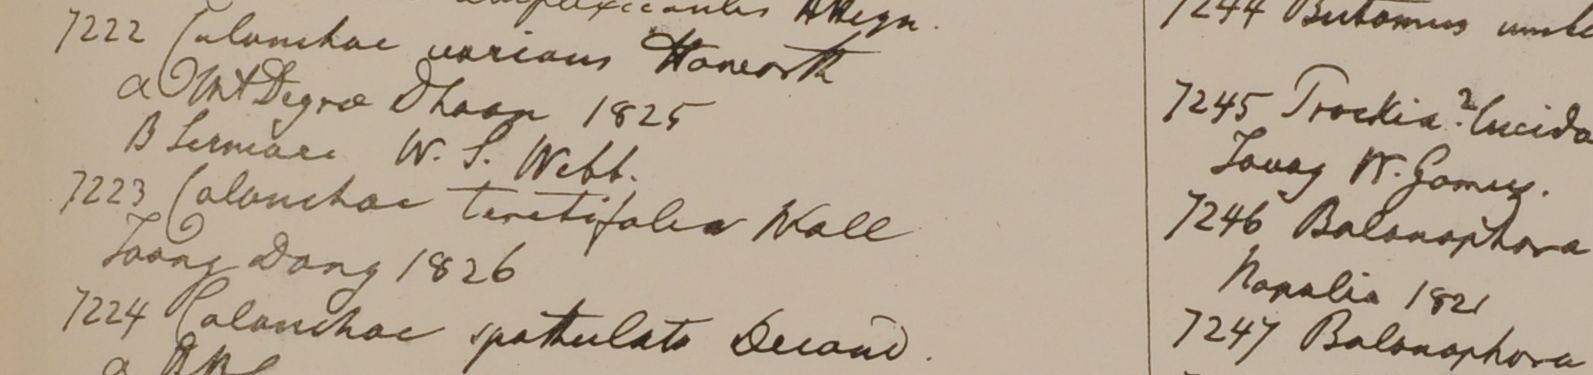 amplexicaulis
7222 Calanchae varians Haworth
a Mt Degree Dhoon 1825
B Sermare W. S. Webb.
7223 Calanchae teretifolia Wall
Toong Dong 1826
7224 Calanchae spathulata Decand.
a
7244 Butomus umbe
7245 Trockia? lucida
Tavoy W. Gomez.
7246 Balanophora
Napalia 1821
7247 Balanophora